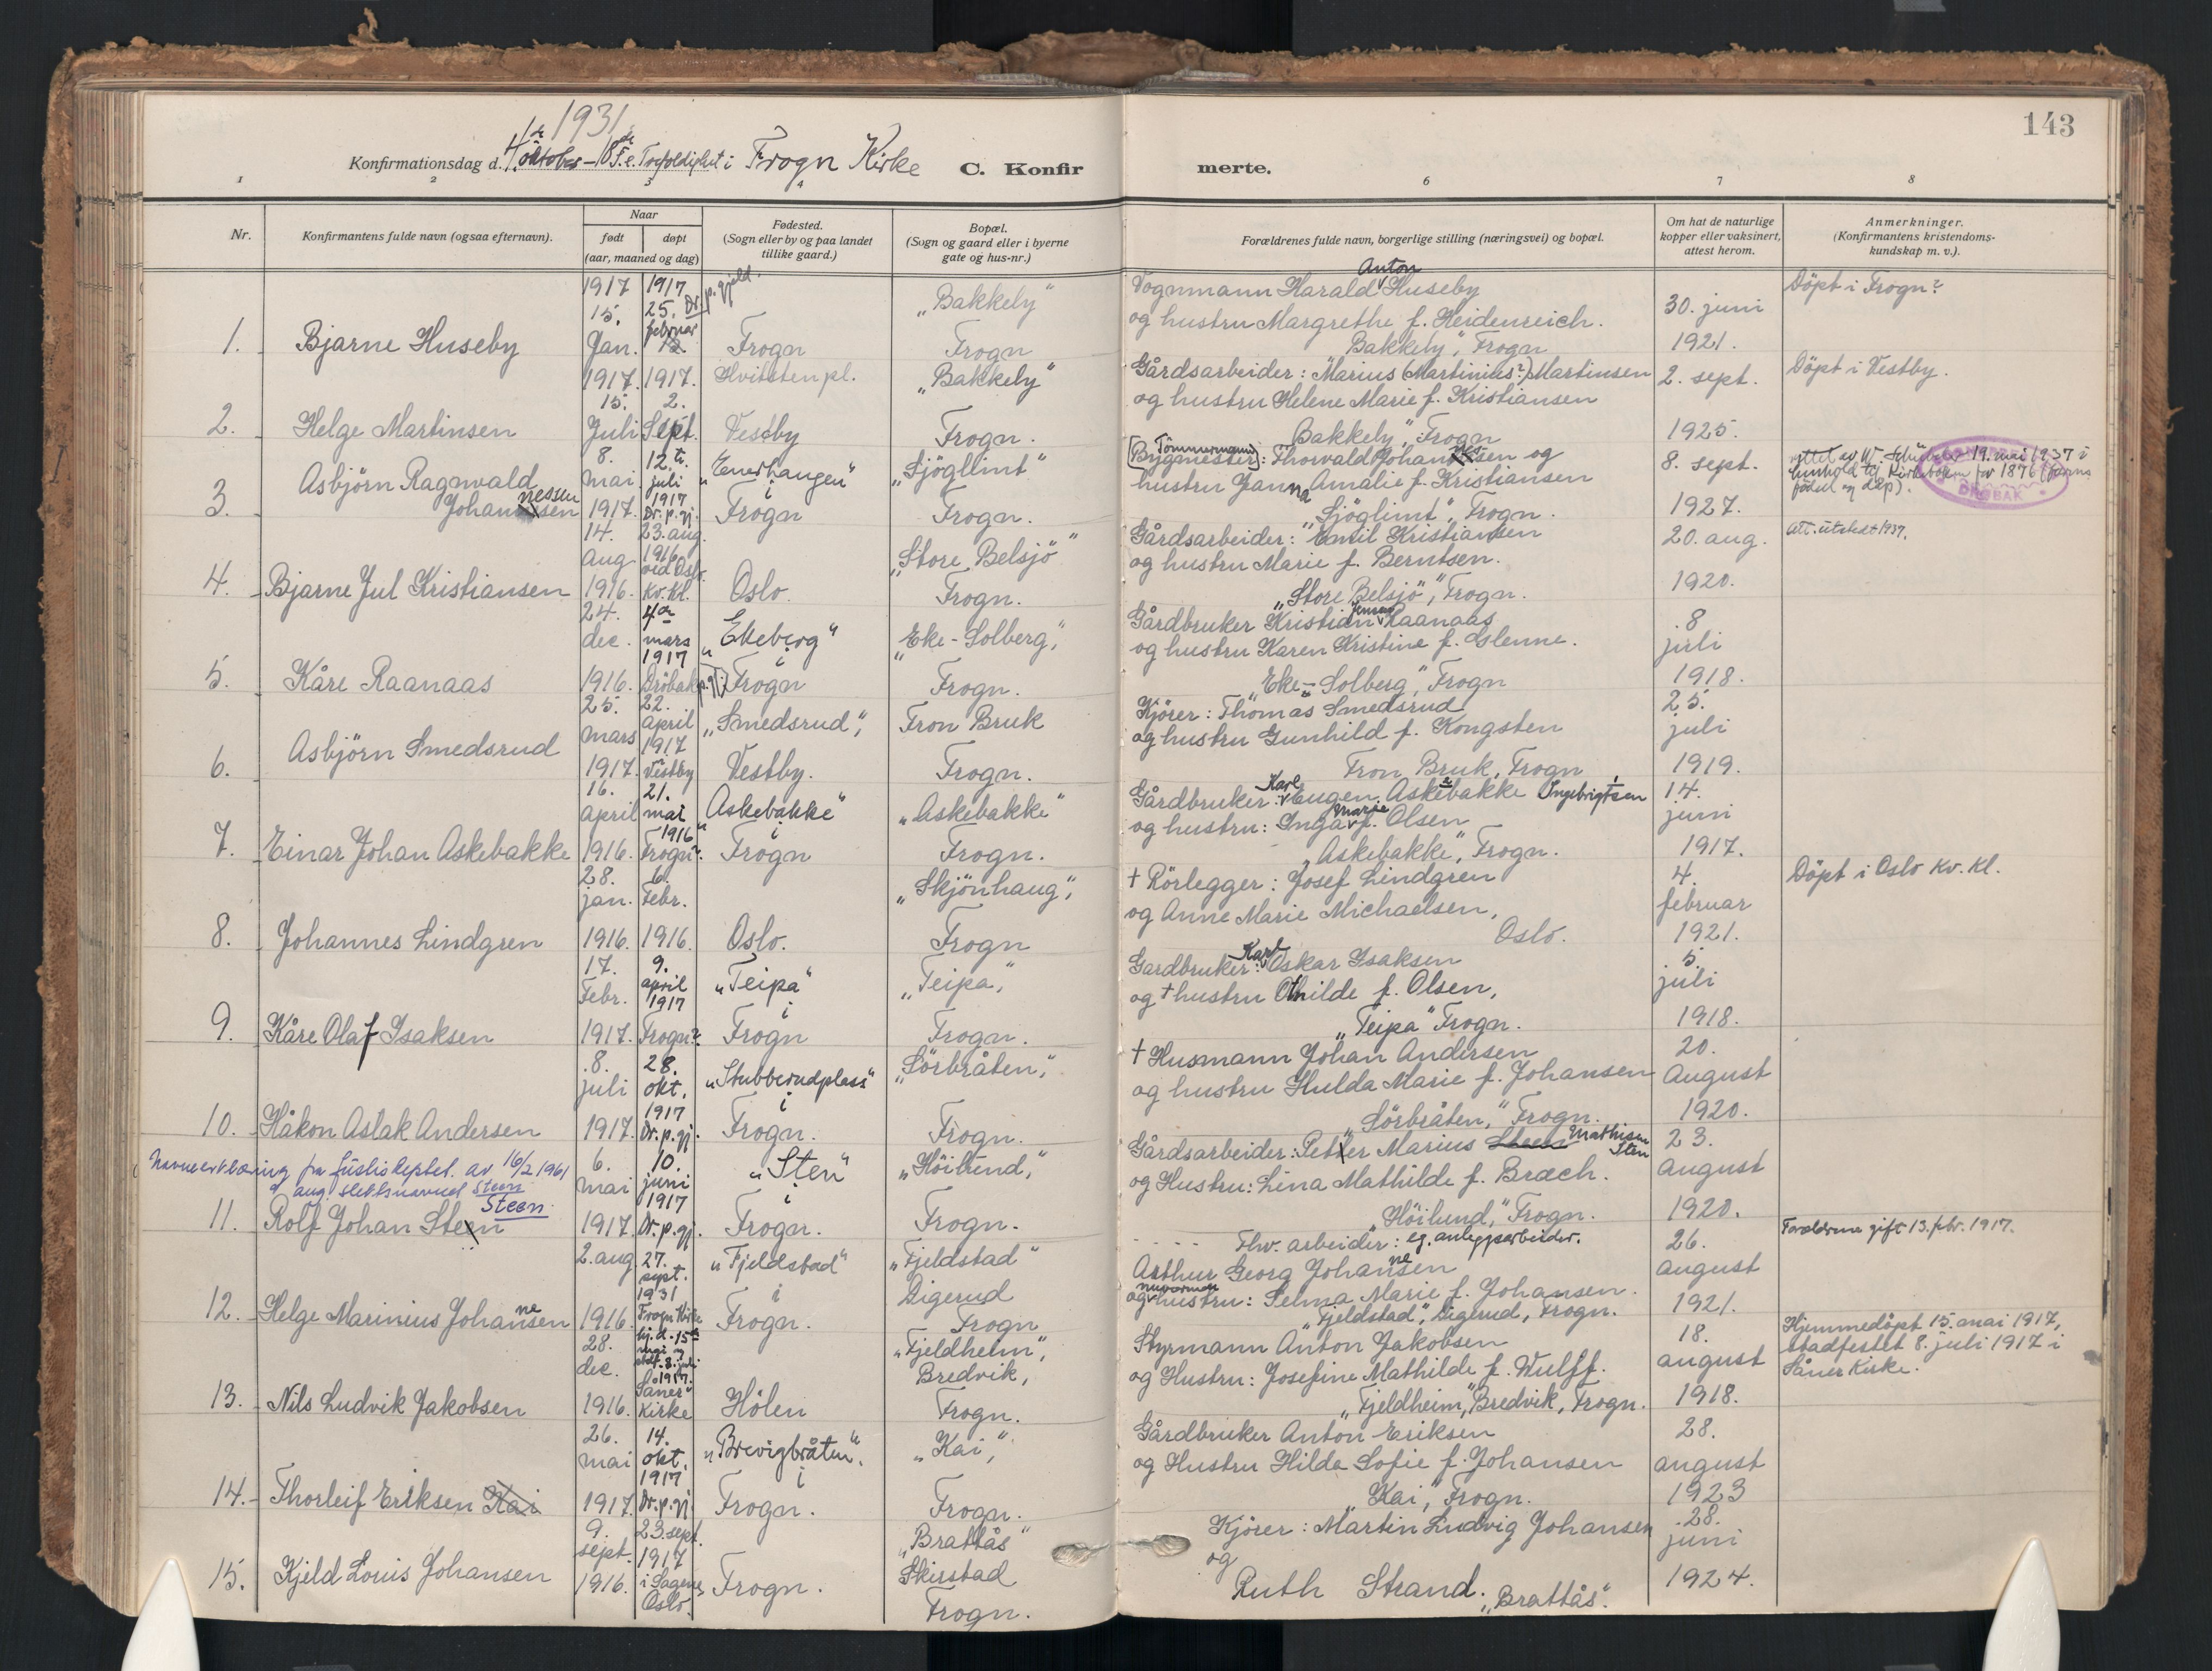 1931
143
Konfirmationsdag d. 4de oktober – 18de S. e. Trefoldighet i Frogn Kirke C. Konfir merte.
1 2 3 4 6 7 8
Nr. Konfirmantens fulde navn (ogsaa efternavn). Naar født døpt (aar, maaned og dag) Fødested. (Sogn eller by og paa landet tillike gaard.) Bopæl. (Sogn og gaard eller i byerne gate og hus-nr.) Forældrenes fulde navn, borgerlige stilling (næringsvei) og bopæl. Om hat de naturlige kopper eller vaksinert, attest herom. Anmerkninger. (Konfirmantens kristendoms-kundskap m. v.).
1917 1917 Dr. p. gjeld. „Bakkely" Vognmann Harald Anton Huseby Döpt i Frogn?
15. 25. februar og hustru Margrethe f. Heidenreich. 30. juni
1. Bjarne Huseby Jan. Frogn Frogn Bakkely", Frogn 1921.
1917. 1917. Hvitsten pl. „Bakkely" Gårdsarbeider: Marius (Martinius?) Martinsen 2. sept. Döpt i Vestby.
15. 2. og hustru Helene Marie f. Kristiansen
2. Helge Martinsen Juli Sept. Vestby Frogn. Bakkely", Frogn 1925.
8. 12. „Enerhaugen" „Sjöglimt" [Bygmester] Tömmermann: Thorvald Johansen og 8. sept. rettet av 19. mai 1937 i henhold til Kirkeboken for 1876
3. Asbjörn Ragnvald mai juli i hustru Janna Amalie f. Kristiansen
Johannessen 1917. 1917 Dr. p. gj. Frogn Frogn. „Sjöglimt", Frogn. 1927.
DRØBAK
14. 23. aug. „Store Belsjö" Gårdsarbeider: Emil Kristiansen 20. aug. Att. utstedt 1937.
aug. 1916 ved Oslo og hustru Marie f. Berntsen.
4. Bjarne Jul Kristiansen 1916. Kv. Kl. Oslo. Frogn. „Store Belsjö", Frogn. 1920.
24. 4de „Ekeberg" „Eke-Solberg", Gårdbruker Kristian Jensen Raanaas 8
dec. mars 1917 i og hustru Karen Kristine f. Glenne. juli
5. Kåre Raanaas 1916. Dröbak p. gj. Frogn Frogn. „Eke-Solberg", Frogn 1918.
25. 22. „Smedsrud", Fron Bruk Kjörer: Thomas Smedsrud 25.
mars april 1917 og hustru Gunhild f. Kongsten juli
6. Asbjörn Smedsrud 1917. Vestby Vestby. Frogn. Fron Bruk, Frogn 1919.
16. 21. „Askebakke" „Askebakke" Gårdbruker: Karl Eugen Askebakke Ingebrigtsen 14.
april mai 1916 i og hustru: Inga Marie f. Olsen juni
7. Einar Johan Askebakke 1916. Frogn? Frogn Frogn. „Askebakke", Frogn. 1917.
28. 6. „Skjönhaug", † Rörlegger: Josef Lindgren 4. Döpt i Oslo Kv. Kl.
jan. Febr. og Anne Marie Michaelsen, februar
8. Johannes Lindgren 1916. 1916. Oslo. Frogn Oslo. 1921.
17. 9. „Teipa" „Teipa", Gardbruker: Karl Oskar Isaksen 5.
Febr. april 1917 i og † hustru Othilde f. Olsen, juli
9. Kåre Olaf Isaksen 1917. Frogn? Frogn Frogn. „Teipa" Frogn. 1918.
8. 28. „Stubberudplass" „Sörbråten", † Husmann Johan Andersen 20.
juli okt. 1917 i og hustru Hulda Marie f. Johansen August
10. Håkon Aslak Andersen 1917. Dr. p. gj. Frogn. Frogn. „Sörbråten", Frogn. 1920.
Navneerklæring fra justisdeptet. av 16/2 1961 6. 10. „Sten" „Höilund", Gårdsarbeider: Petter Marius Steen Mathisen Sten 23.
ang. slektsnavnet Steen mai juni 1917 i og Hustru: Lina Mathilde f. Bræch. august
11. Rolf Johan Steen Steen 1917. Dr. p. gj. Frogn. Frogn. „Höilund", Frogn. 1920.
2. aug. 27. sept. „Fjeldstad" „Fjeldstad" Fhv. arbeider: eg. anleggsarbeider. 26. Foreldrene gift 13. febr. 1917.
1931 i Digerud Arthur Georg Johannesen august
12. Helge Marinius Johannesen 1916. Frogn Kirke Frogn. Frogn og nuværende hustru: Selma Marie f. Johansen. 1921.
„Fjeldstad", Digerud, Frogn.
28. hj. d. 15de mai og stdf. 8. juli „Fjeldheim", Styrmann Anton Jakobsen 18. Hjemmedöpt 15. mai 1917,
dec. 1917. Bredvik, og Hustru: Josefine Mathilde f. Wulff. august stadfestet 8. juli 1917 i
13. Nils Ludvik Jakobsen 1916. Såner Kirke Hölen Frogn. „Fjeldheim", Bredvik, Frogn. 1918. Såner Kirke.
26. 14. „Brevigbråten". „Kai", Gårdbruker Anton Eriksen 28.
mai okt. 1917 i og Hustru Hilda Sofie f. Johansen august
14. Thorleif Eriksen Kai 1917. Dr. p. gj. Frogn. Frogn. „Kai", Frogn. 1923
9. 23. sept. „Brattås" Kjörer: Martin Ludvig Johansen 28.
sept. 1917 Skirstad og juni
15. Kjeld Louis Johansen 1916. i Sagene, Oslo. Frogn. Frogn. Ruth Strand. „Brattås". 1924.